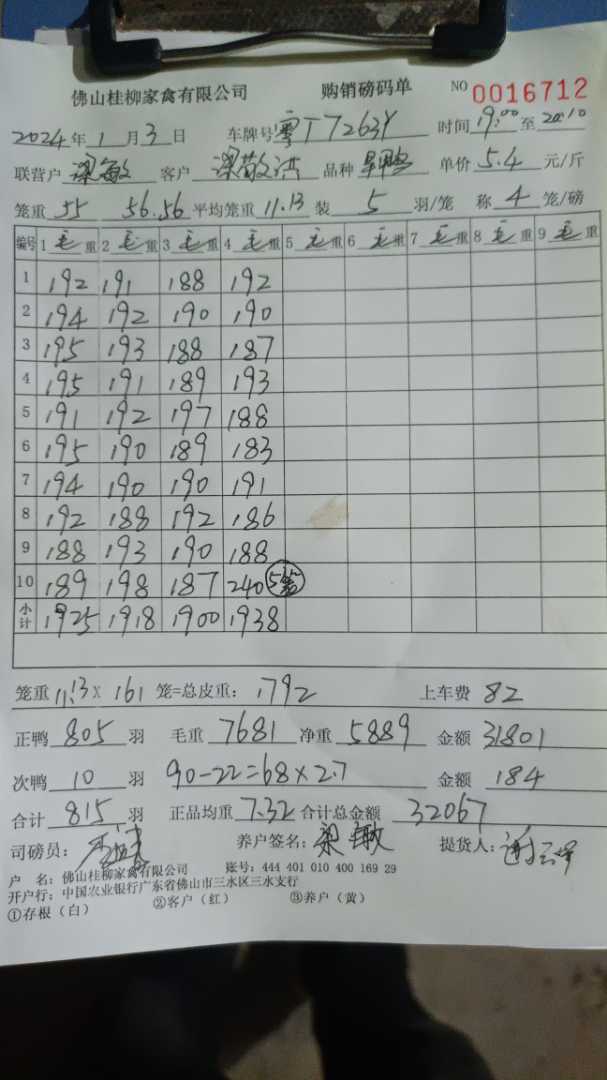 佛山桂柳家禽有限公司 购销磅码单 NO 0016712
2024年1月3日 车牌号粤T7263Y 时间9:00至20:10
联营户梁敏 客户梁敬洪 品种 单价5.4元/斤
笼重55 56.56平均笼重11.13装5羽/笼 称4笼/磅
编号 1毛重 2毛重 3毛重 4毛重 5毛重 6毛重 7毛重 8毛重 9毛重
1 192 191 188 192
2 194 192 190 190
3 195 193 188 187
4 195 191 189 193
5 191 192 197 188
6 195 190 189 183
7 194 190 190 191
8 192 188 192 186
9 188 193 190 188
10 189 198 187 240 5笼
小计 1925 1918 1900 1938
笼重11.13×161笼=总皮重：1792 上车费82
正鸭805羽 毛重7681净重5889 金额31801
次鸭10羽 90-22=68×2.7 金额184
合计815羽 正品均重7.32合计总金额32067
司磅员： 养户签名：梁敏 提货人：
户 名：佛山桂柳家禽有限公司 账号：444 401 010 400 169 29
开户行：中国农业银行广东省佛山市三水区三水支行
①存根（白） ②客户（红） ③养户（黄）